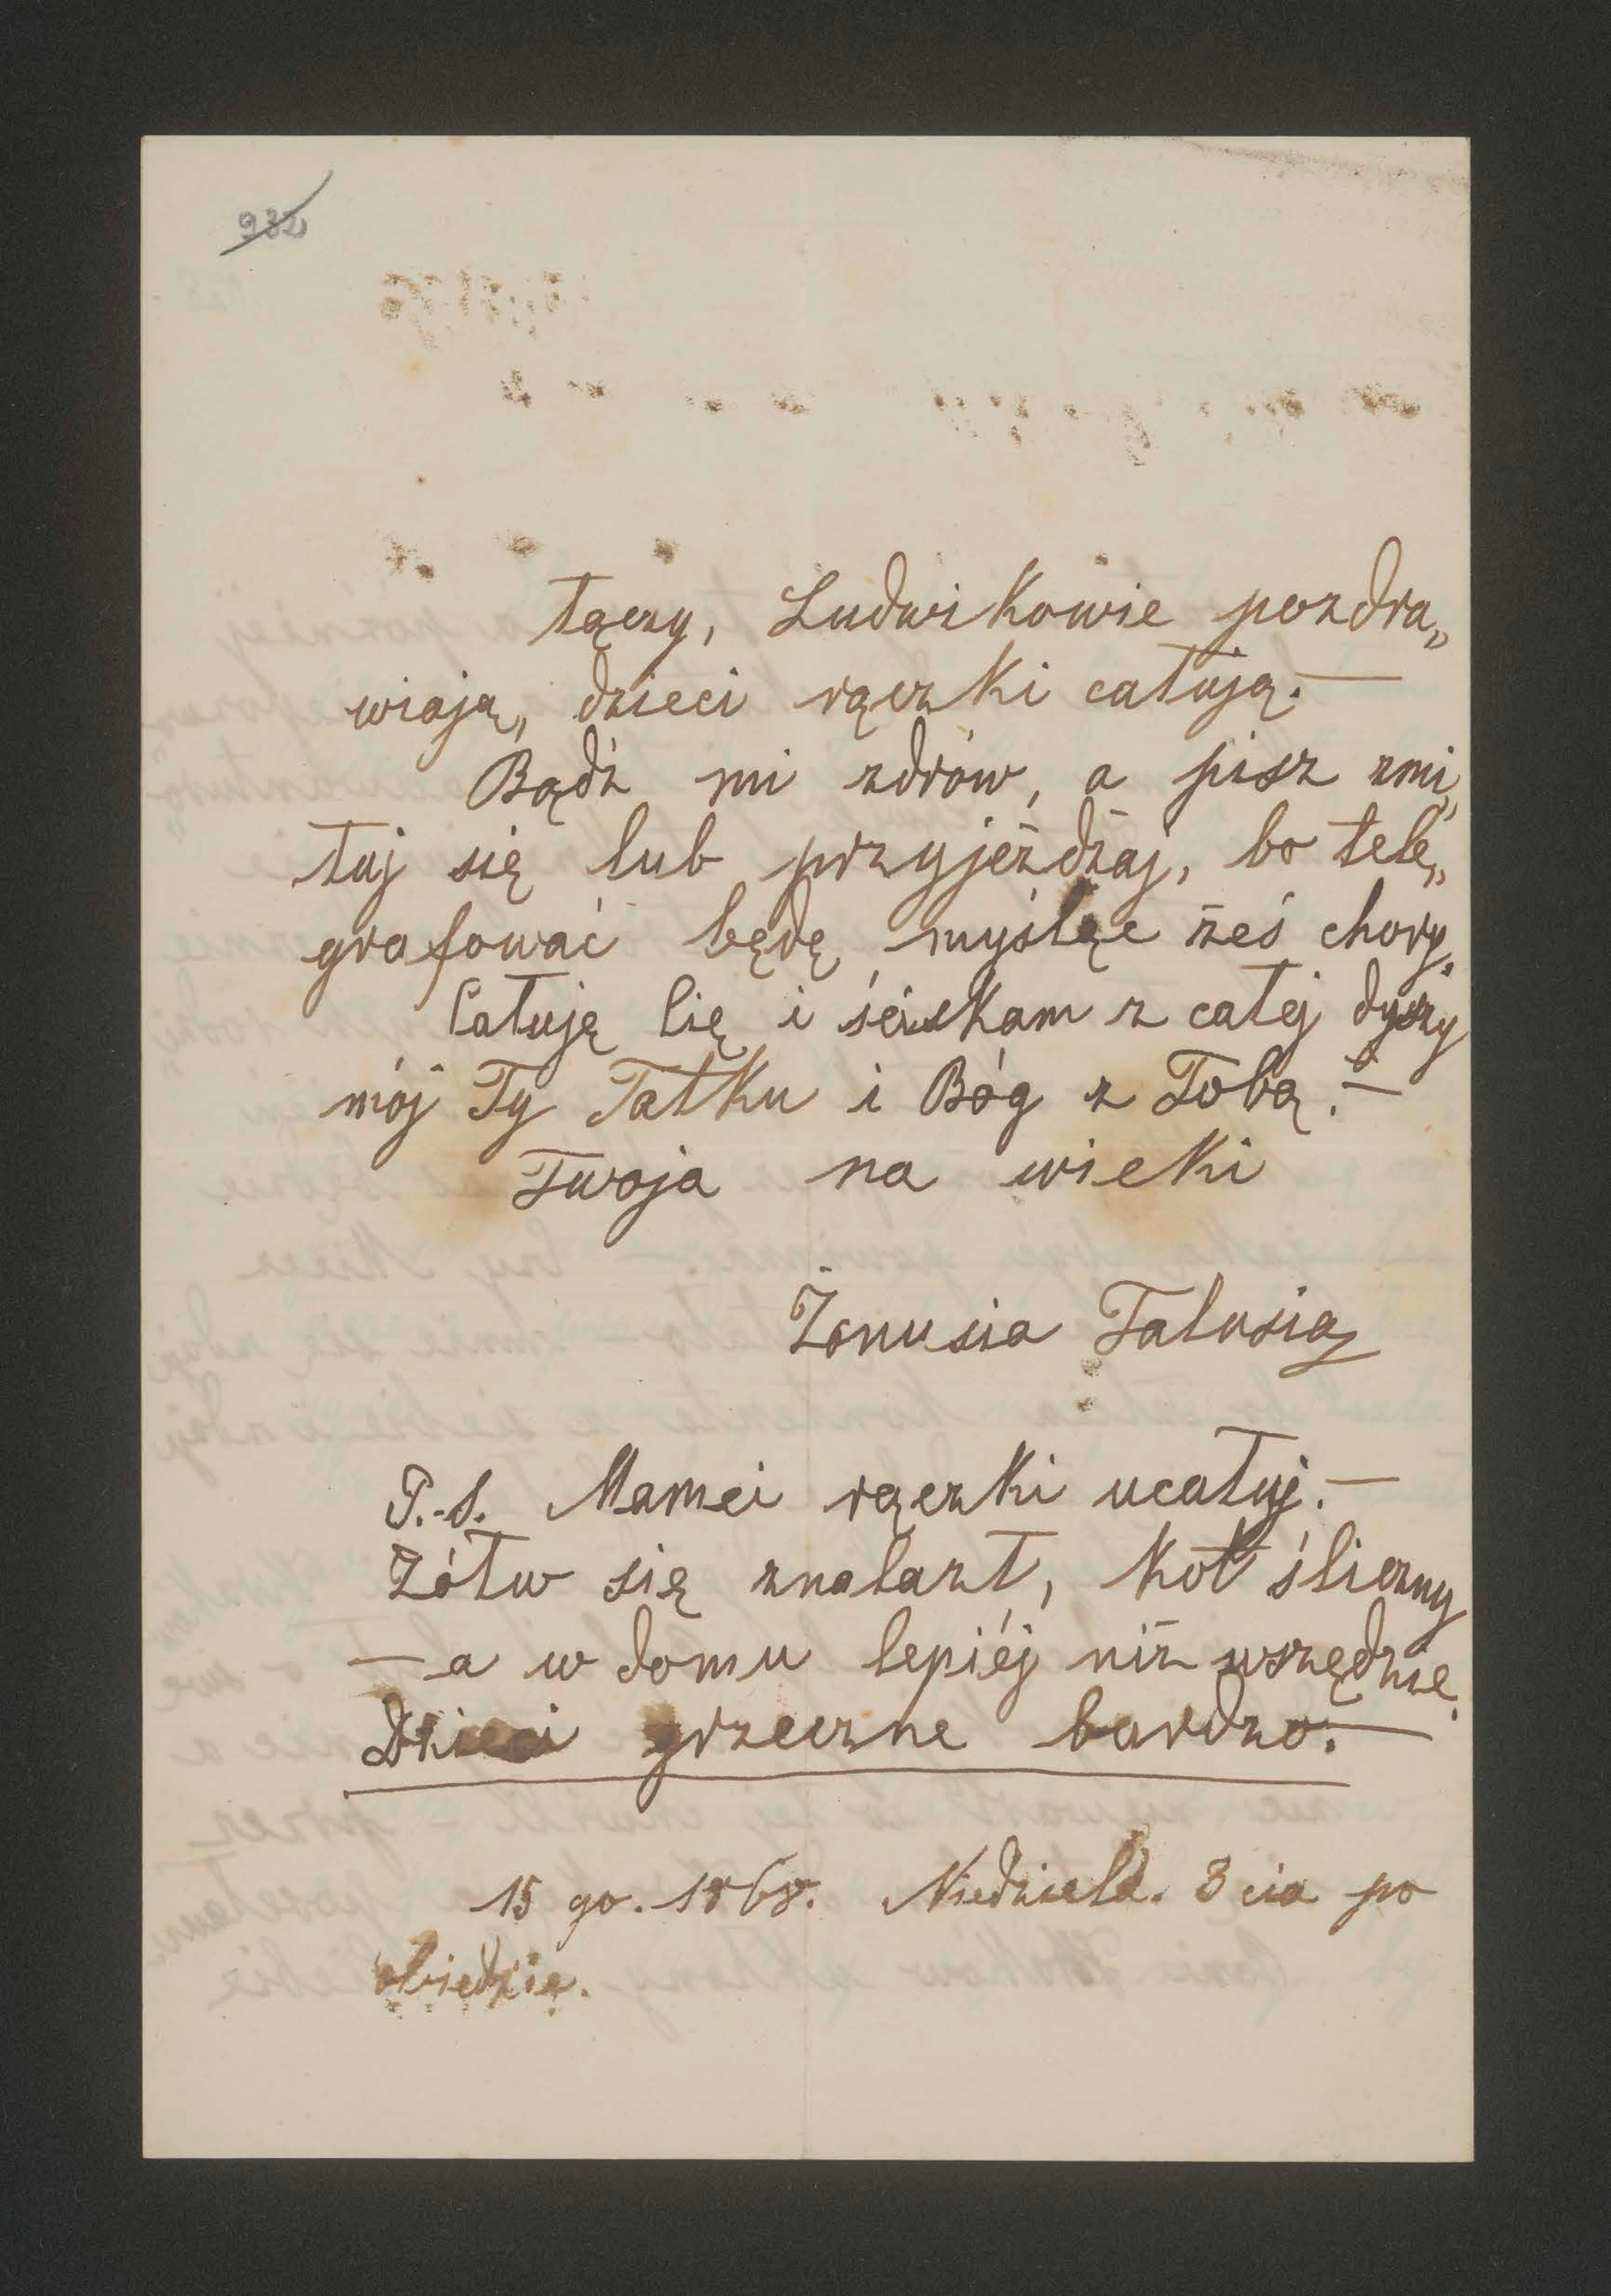 932
łączy, Ludwikowie pozdra„
wiają, dzieci rączki całują.—
Bądź mi zdrów, a pisz zmi„
łuj się lub przyjeżdżaj, bo tele„
grafować będę, myśląc żeś chory.
Całuję Cię i ściskam z całej duszy
mój Ty Tatku i Bóg z Tobą.—
Twoja na wieki
Żonusia Talusia
P.-S. Mamci rączki ucałuj.—
Żółw się znalazł, kot śliczny
— a w domu lepiéj niż wszędzie.
Dzieci grzeczne bardzo.—
15 go. 1868. Niedziela. 3 cia po
obiedzie.